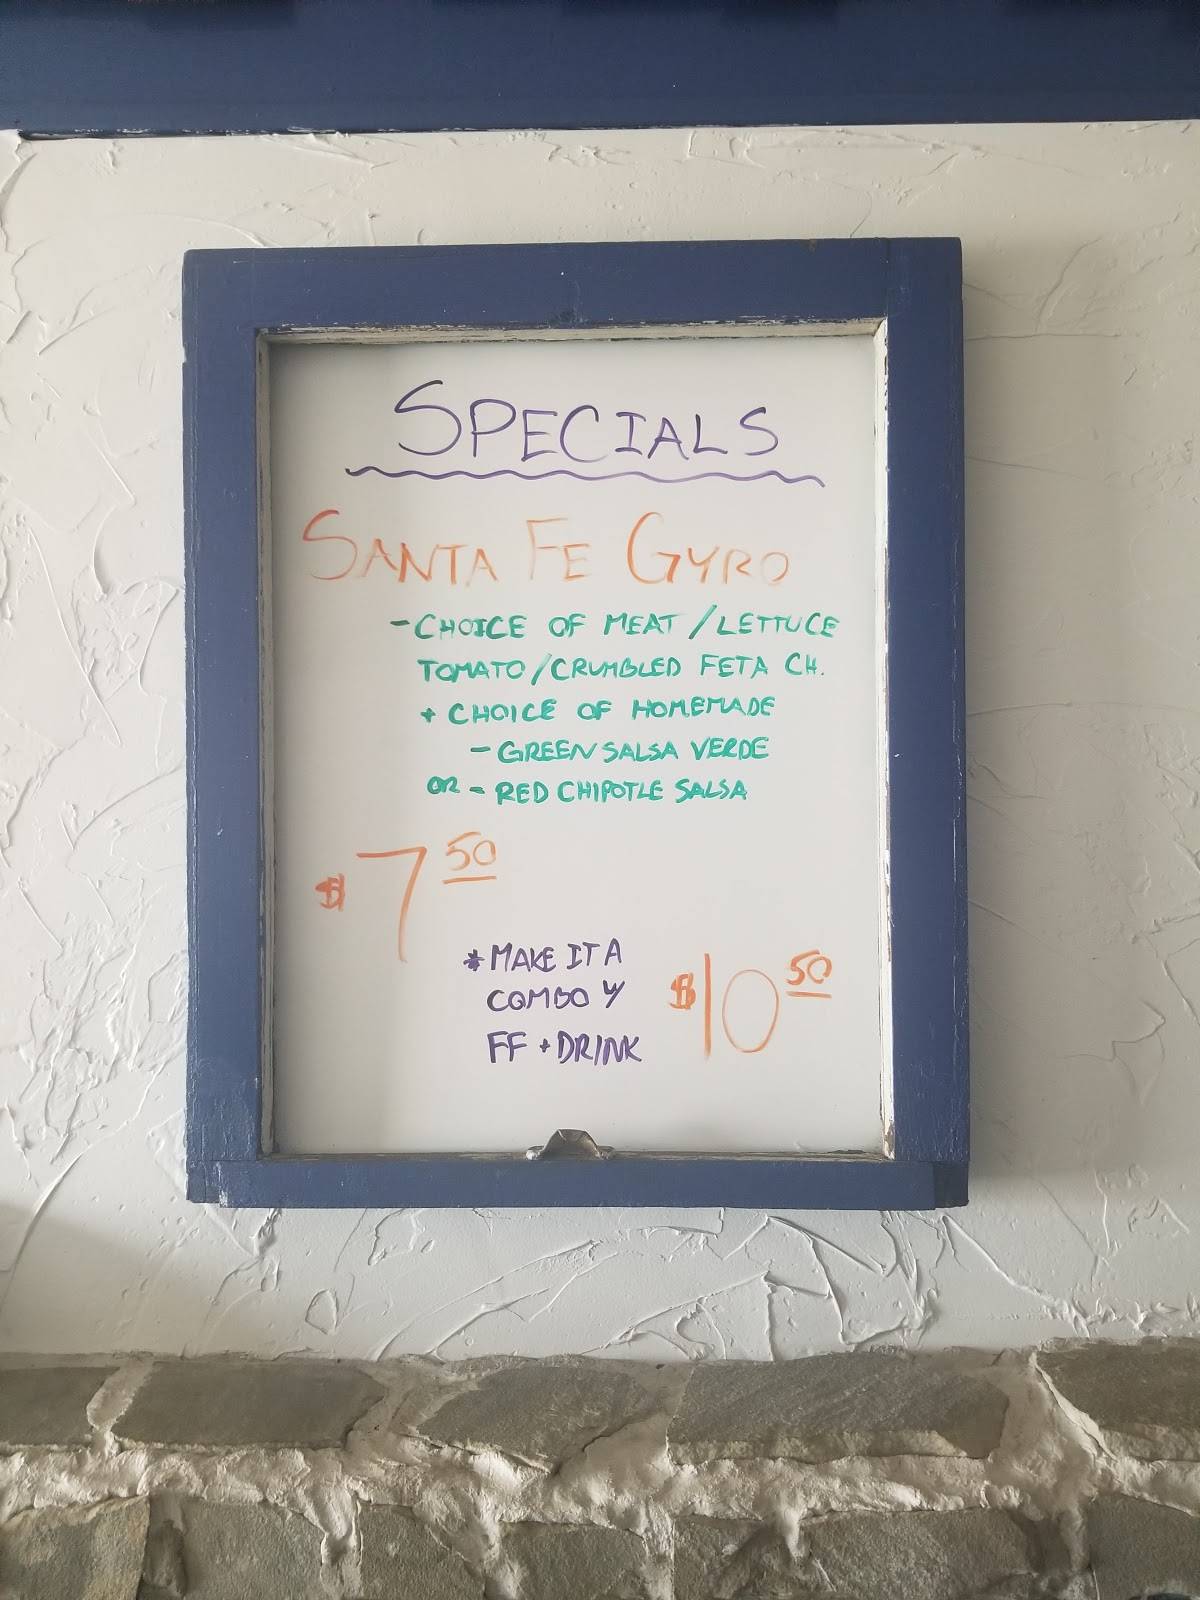 SPECIALS
SANTA FE GYRO
- CHOICE OF MEAT / LETTUCE
TOMATO / CRUMBLED FETA CH.
+ CHOICE OF HOMEMADE
- GREEN SALSA VERDE
OR - RED CHIPOTLE SALSA
$7 50
* MAKE IT A
COMBO W/
FF + DRINK
$10 50